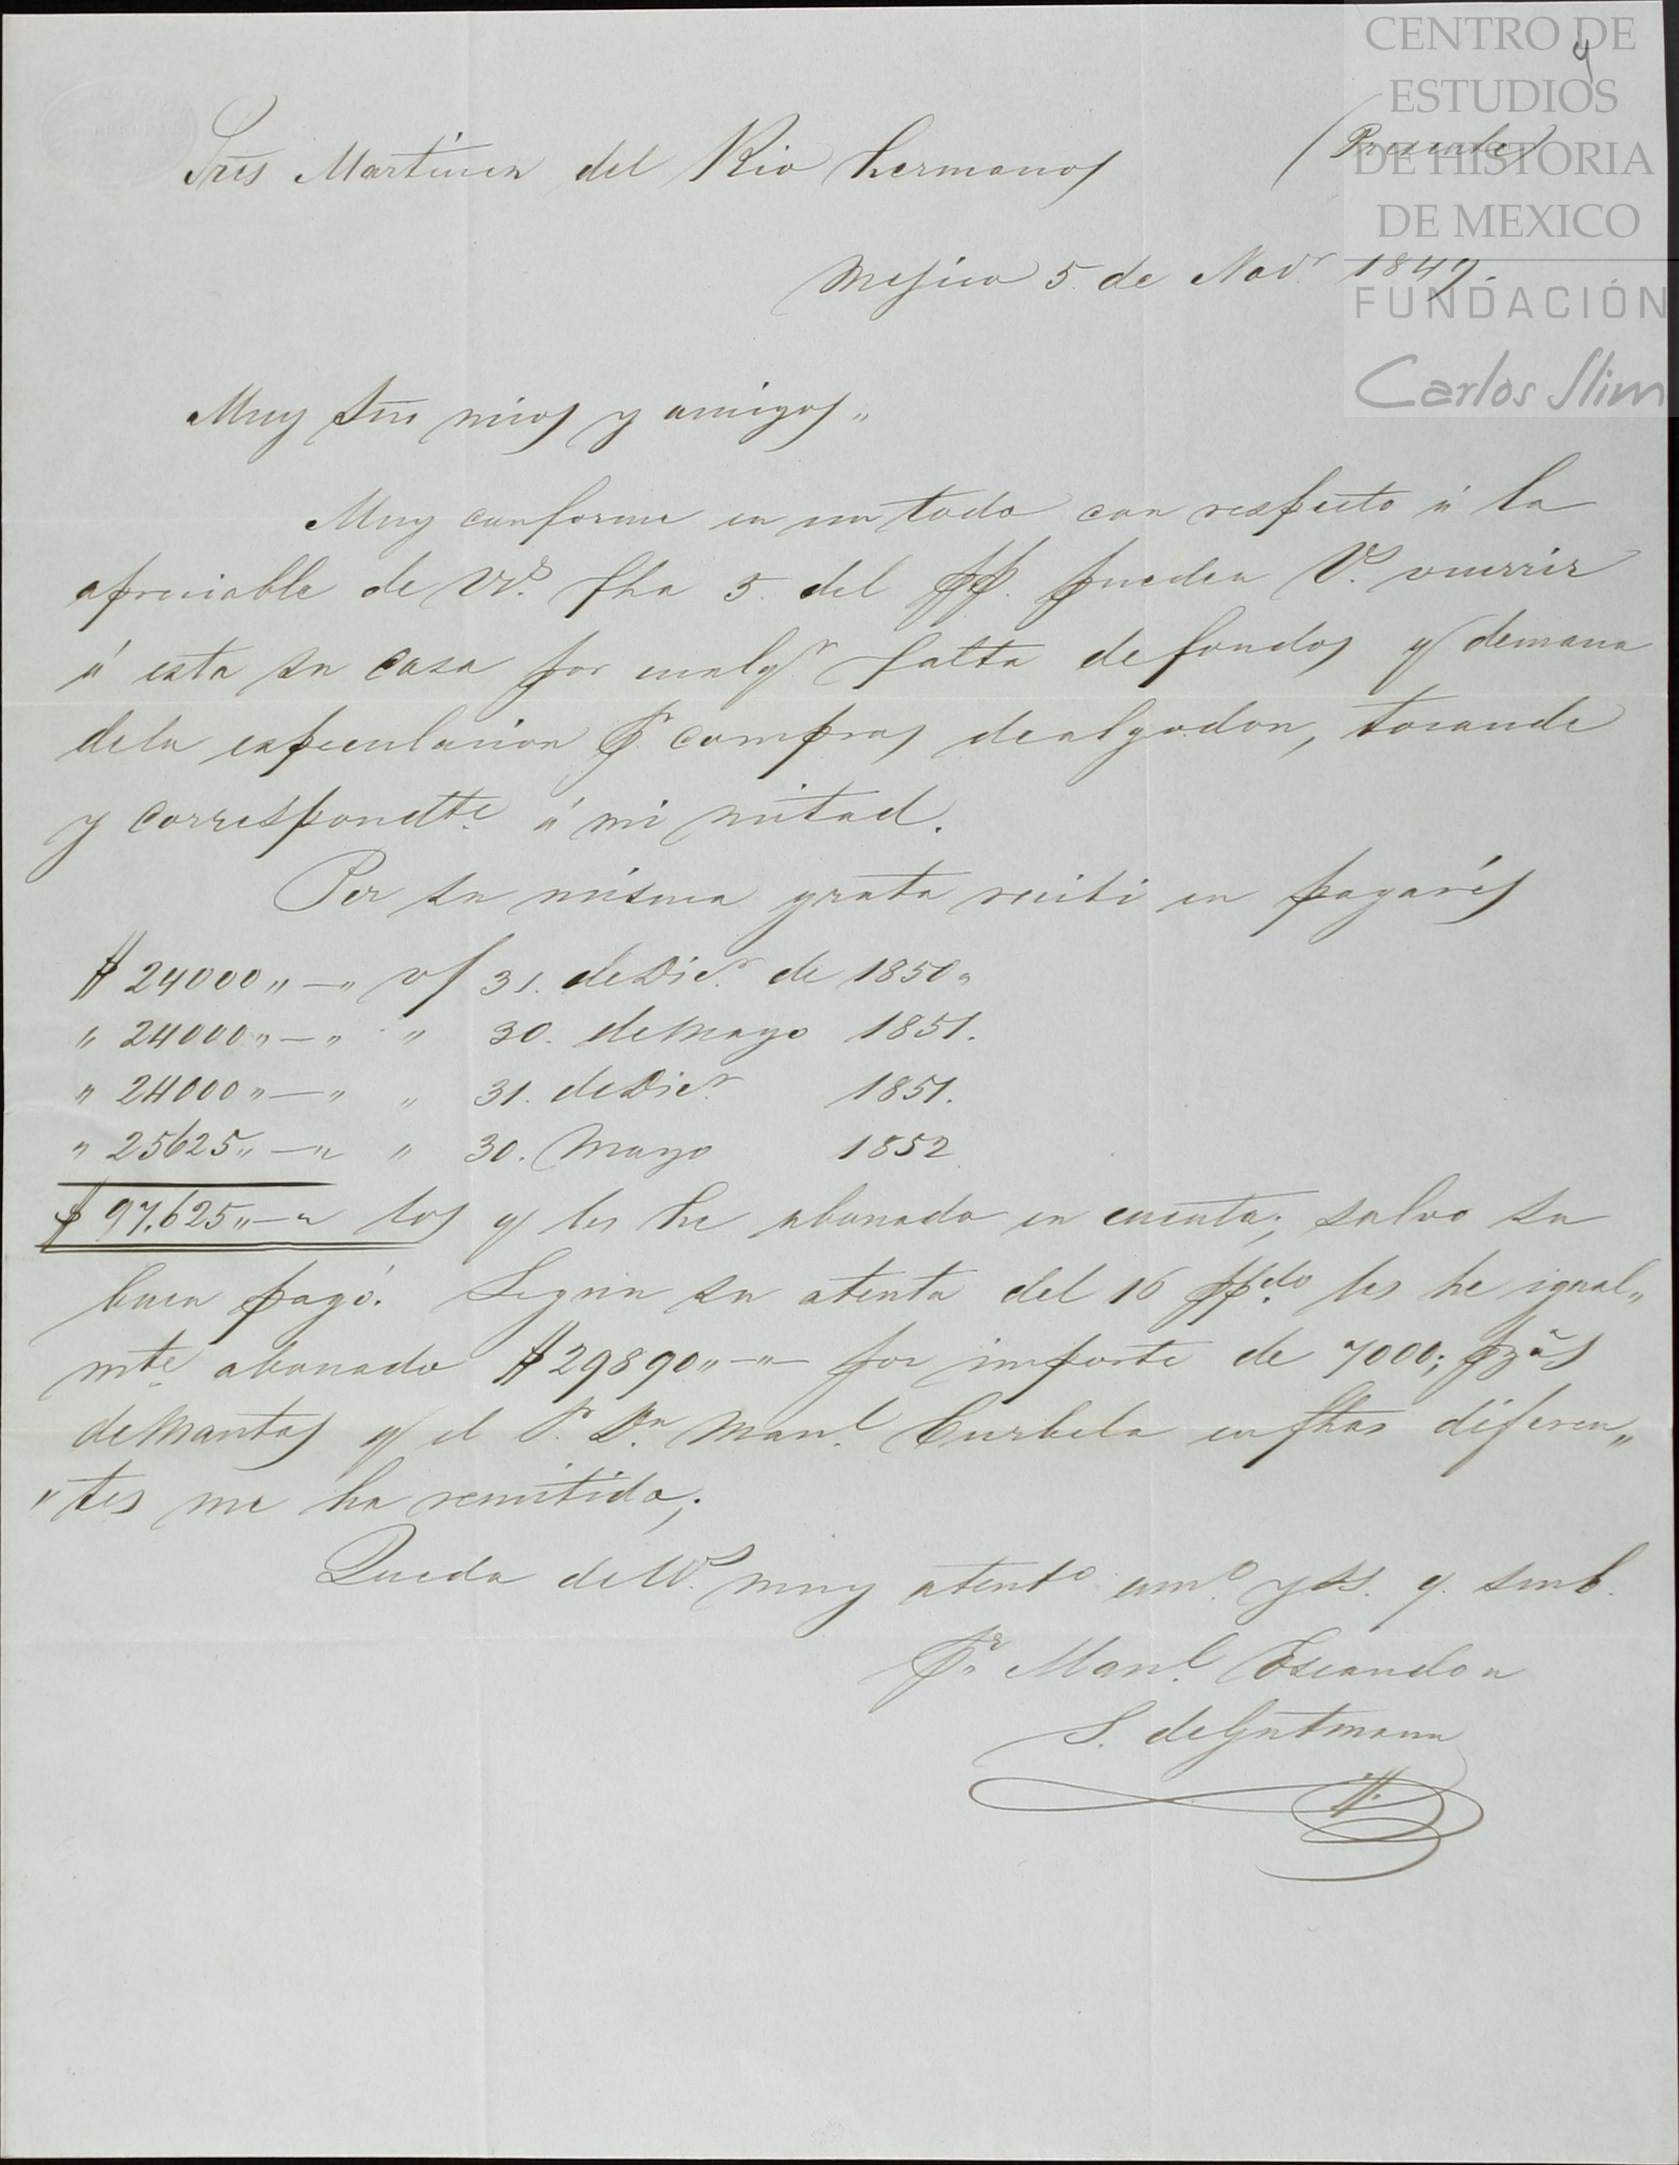 CENTRO DE
ESTUDIOS
DE HISTORIA
DE MEXICO
FUNDACIÓN
Carlos Slim
4
Sres Martinez del Rio hermanos (Presente)
Mejico 5. de Novr 1849.
Muy Sres mios y amigos„
Muy conforme en un todo con respecto á la
apreciable de Vs. fha 5. del pp. pueden Vs. ocurrir
á esta su casa por cualqr falta de fondos y demana
dela especulacion pr compras dealgodon, tocande
y correspondte á mi mitad.
Por su misma grata recibi en pagarés
$ 24000„—„ v/ 31. deDicr. de 1850„
„ 24000„—„ „ 30. deMayo 1851.
„ 24000„—„ „ 31. deDicr. 1851.
„ 25625„—„ „ 30. Mayo 1852
$ 97.625„—„ los q les he abonado en cuenta; salvo su
buen pagó. Segun su atenta del 16 ppdo. les he igual„
mte. abonado $ 29890„—„— por importe de 7000; pzas
deMantas q el Sr. Dn. Manl. Curbelo enfhas diferen„
„tes me ha remitido;
Queda deVs. muy atento. amo. y SS. q. smb.
Pr. Manl. Escandon
S. deGutmann